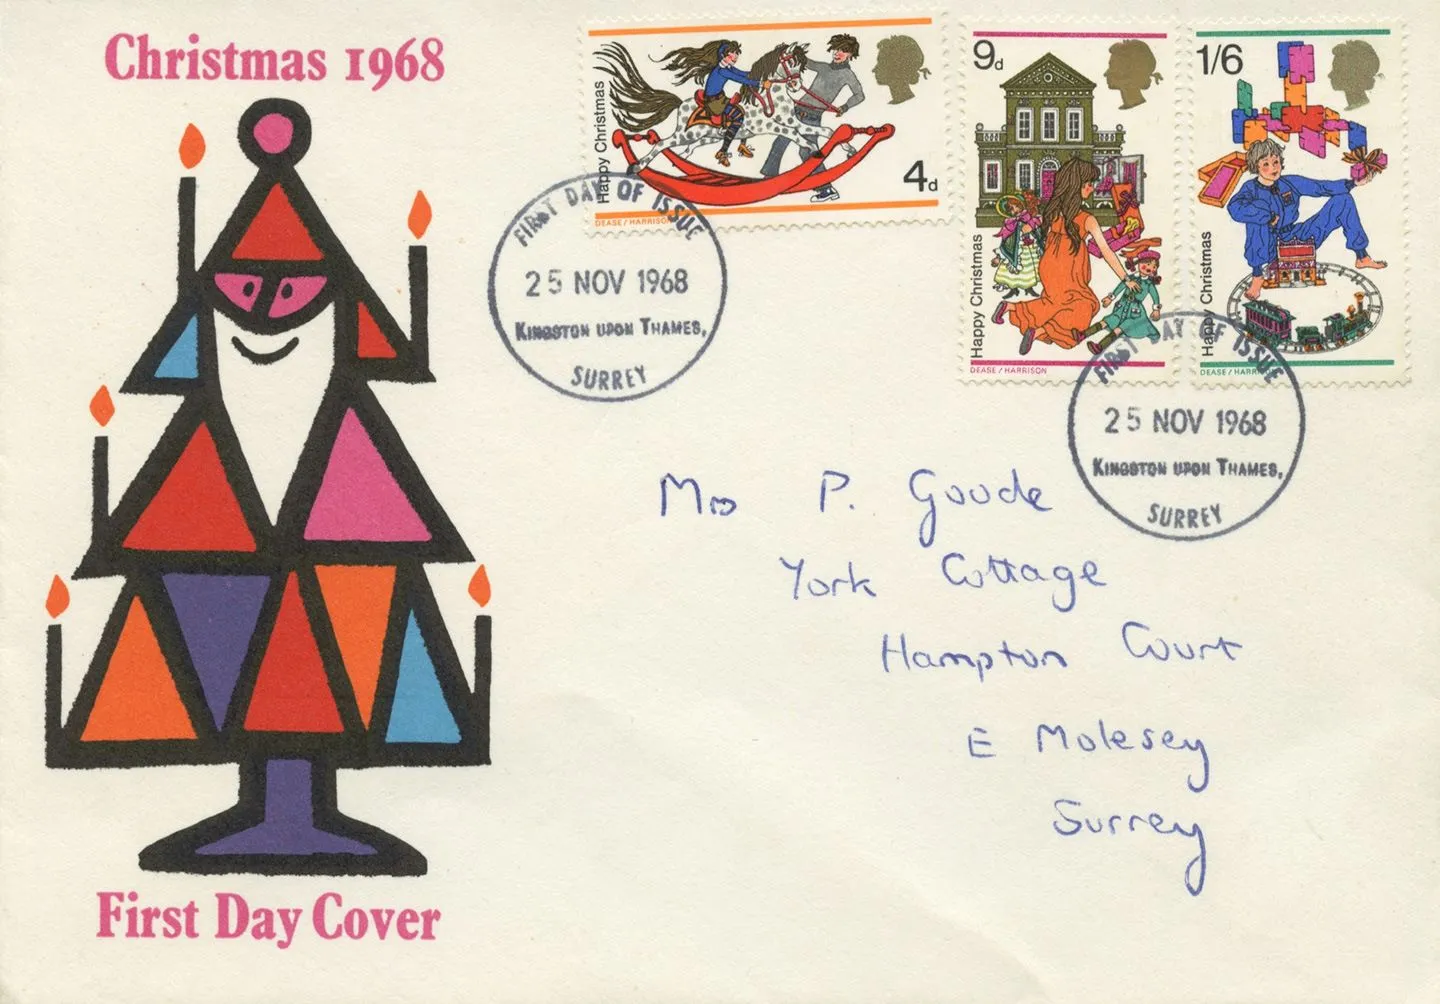 Christmas 1968
Happy Christmas
4d
DEASE / HARRISON
9d
Happy Christmas
DEASE / HARRISON
1/6
Happy Christmas
DEASE / HARRISON
FIRST DAY OF ISSUE
25 NOV 1968
KINGSTON UPON THAMES,
SURREY
FIRST DAY OF ISSUE
25 NOV 1968
KINGSTON UPON THAMES,
SURREY
Mrs P. Goode
York Cottage
Hampton Court
E Molesey
Surrey
First Day Cover